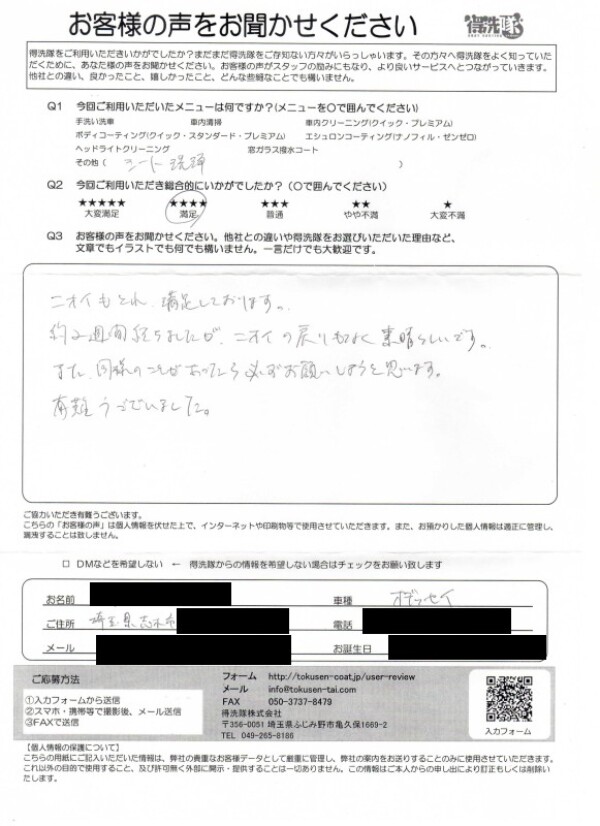 お客様の声をお聞かせください
得洗隊
得洗隊をご利用いただきいかがでしたか？まだまだ得洗隊をご存知ない方々がいらっしゃいます。その方々へ得洗隊をよく知っていた
だくために、あなた様の声をお聞かせください。お客様の声がスタッフの励みにもなり、より良いサービスへとつながっていきます。
他社との違い、良かったこと、嬉しかったこと、どんな些細なことでも構いません。
Q1 今回ご利用いただいたメニューは何ですか？(メニューを〇で囲んでください)
手洗い洗車 車内清掃 車内クリーニング(クイック・プレミアム)
ボディコーティング(クイック・スタンダード・プレミアム) エシュロンコーティング(ナノフィル・ゼンゼロ)
ヘッドライトクリーニング 窓ガラス撥水コート
その他（ シート洗浄 ）
Q2 今回ご利用いただき総合的にいかがでしたか？（〇で囲んでください）
★★★★★ ★★★★ ★★★ ★★ ★
大変満足 満足 普通 やや不満 大変不満
Q3 お客様の声をお聞かせください。他社との違いや得洗隊をお選びいただいた理由など、
文章でもイラストでも何でも構いません。一言だけでも大歓迎です。
ニオイもとれ、満足しております。
約2週間経ちましたが、ニオイの戻りもなく素晴らしいです。
また、同様のことがあったら必ずお願いしようと思います。
有難うございました。
ご協力いただき有難うございます。
こちらの「お客様の声」は個人情報を伏せた上で、インターネットや印刷物等で使用させていただきます。また、お預かりした個人情報は適正に管理し、
漏洩することは致しません。
□ DMなどを希望しない ← 得洗隊からの情報を希望しない場合はチェックをお願い致します
お名前 車種 オデッセイ
ご住所 埼玉県志木市 電話
メール お誕生日
ご応募方法
①入力フォームから送信
②スマホ・携帯等で撮影後、メール送信
③FAXで送信
フォーム http://tokusen-coat.jp/user-review
メール info@tokusen-tai.com
FAX 050-3737-8479
得洗隊株式会社
〒356-0051 埼玉県ふじみ野市亀久保1669-2
TEL 049-265-8186
入力フォーム
【個人情報の保護について】
こちらの用紙にご記入いただいた情報は、弊社の貴重なお客様データとして厳重に管理し、弊社の案内をお送りすることのみに使用させていただきます。
これ以外の目的で使用すること、及び許可無く外部に開示・提供することは一切ありません。この情報はご本人からの申し出により訂正もしくは削除い
たします。